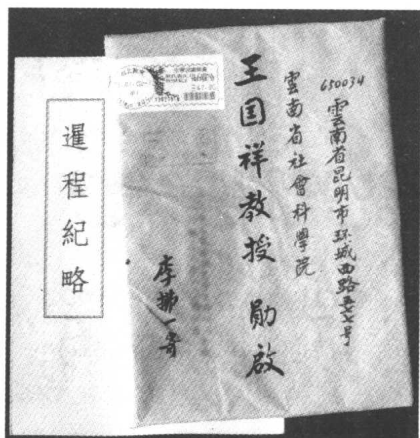 650034 雲南省昆明市环城西路五七七号
雲南省社會科學院
王国祥教授 勛啟
李拂一寄
暹程紀略